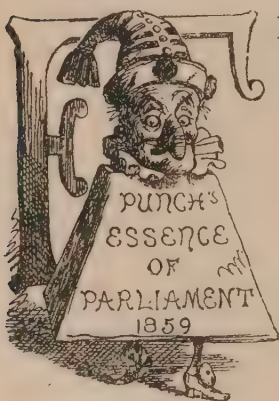 PUNCH'S
ESSENCE
OF
PARLIAMENT
1859